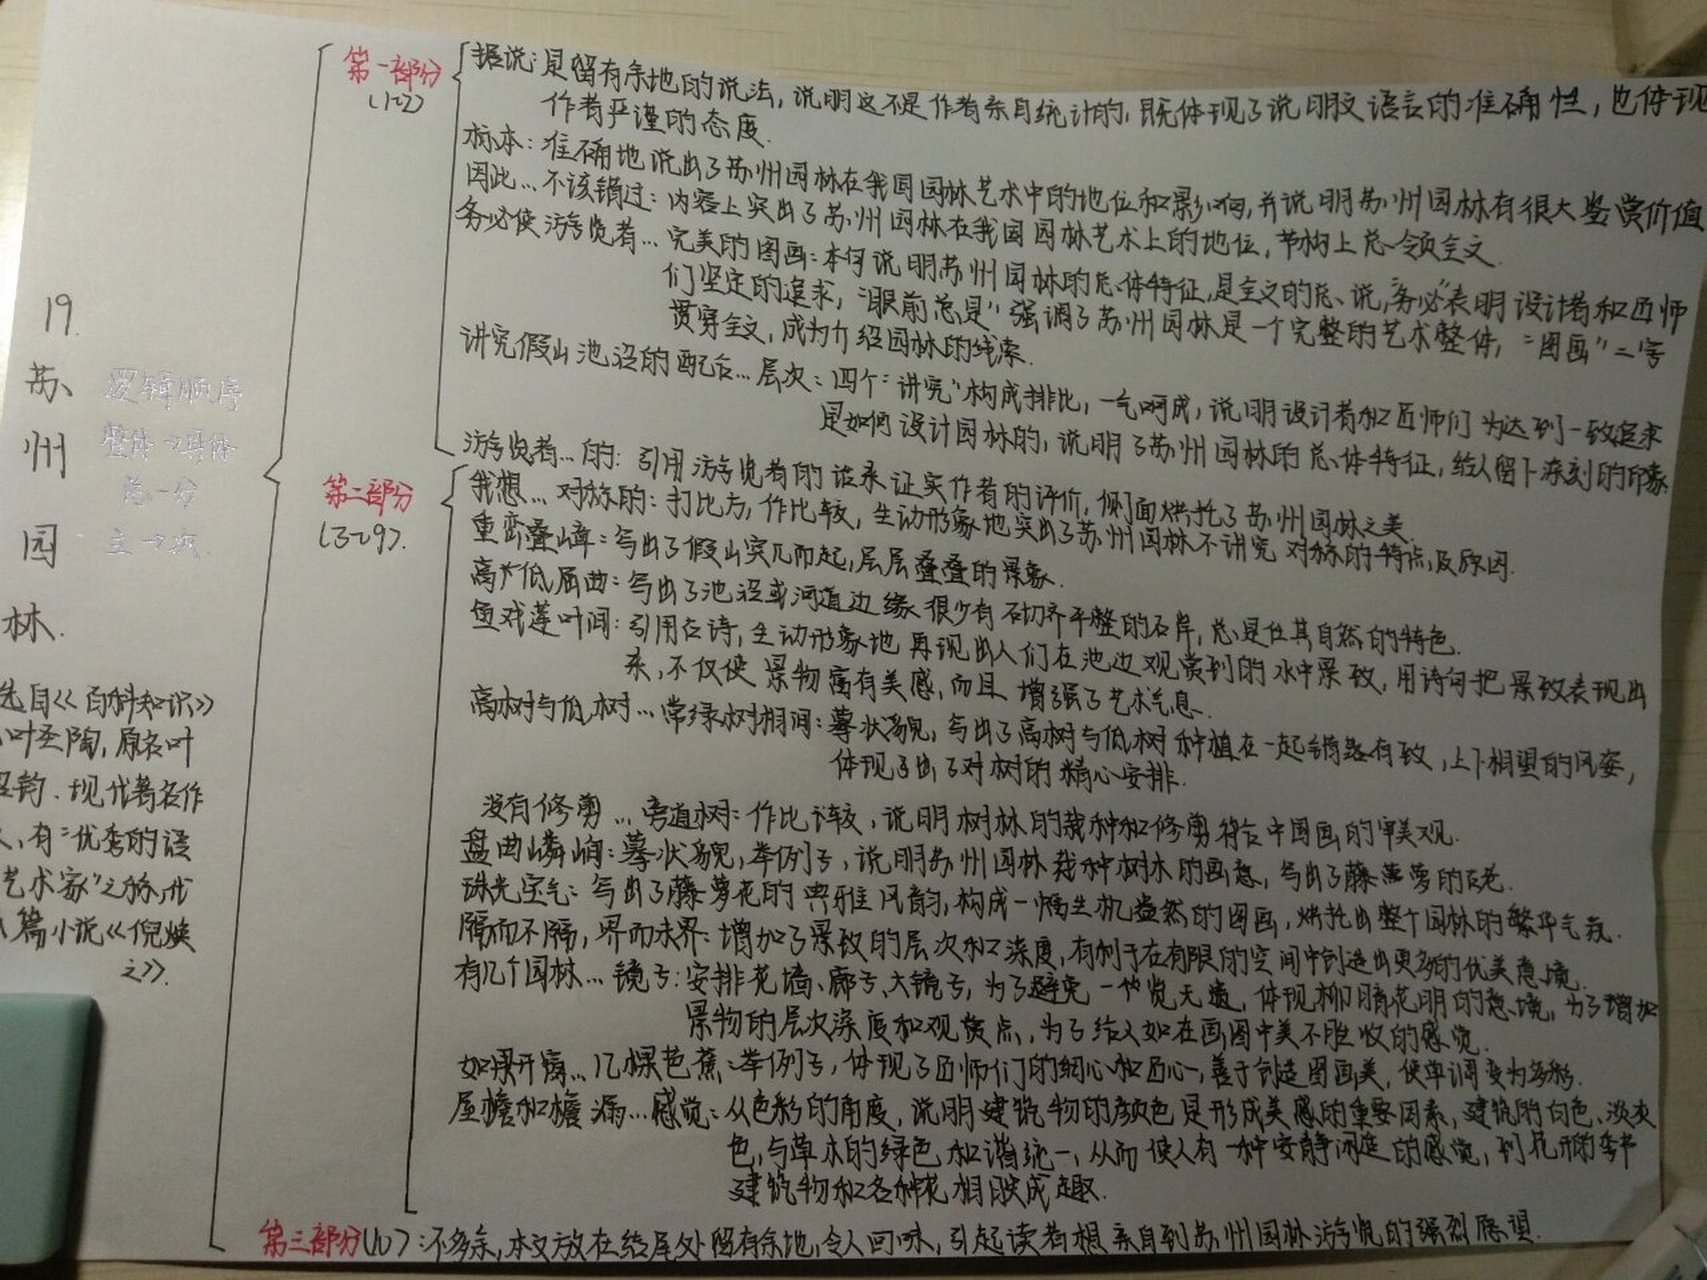 19.
苏
州
园
林.
逻辑顺序
整体→具体
总—分
主→次.
选自《百科知识》
叶圣陶,原名叶
绍钧.现代著名作
有“优秀的语
艺术家”之称,代
篇小说《倪焕
之》.
第一部分
(1-2)
据说:是留有余地的说法,说明这不是作者亲自统计的,既体现了说明文语言的准确性,也体现
作者严谨的态度.
标本:准确地说出了苏州园林在我国园林艺术中的地位和影响,并说明苏州园林有很大鉴赏价值
因此…不该错过:内容上突出了苏州园林在我国园林艺术上的地位,节构上总领全文.
务必使游览者…完美的图画:本句说明苏州园林的总体特征,是全文的总说,“务必”表明设计者和匠师
们坚定的追求,“眼前总是”强调了苏州园林是一个完整的艺术整体,“图画”二字
贯穿全文,成为介绍园林的线索.
讲究假山池沼的配合…层次:四个“讲究”构成排比,一气呵成,说明设计者和匠师们为达到一致追求
是如何设计园林的,说明了苏州园林的总体特征,给人留下深刻的印象.
游览者…的:引用游览者的话来证实作者的评价,侧面烘托了苏州园林之美.
第二部分
(3-9).
我想…对称的:打比方,作比较,生动形象地突出了苏州园林不讲究对称的特点,及原因.
重峦叠嶂:写出了假山突兀而起,层层叠叠的景象.
高低屈曲:写出了池沼或河道边缘很少有砌齐平整的石岸,总是任其自然的特色.
鱼戏莲叶间:引用古诗,生动形象地再现出人们在池边观赏到的水中景致,用诗句把景致表现出
来,不仅使景物富有美感,而且增强了艺术气息.
高树与低树…常绿树相间:摹状貌,写出了高树与低树种植在一起错落有致,上下相望的风姿,
体现了出了对树的精心安排.
没有修剪…旁道树:作比较,说明树林的栽种和修剪符合中国画的审美观.
盘曲嶙峋:摹状貌,举例子,说明苏州园林栽种树木的画意,写出了藤萝的
珠光宝气:写出了藤萝花的典雅风韵,构成一幅生机盎然的图画,烘托出整个园林的繁华气氛.
隔而不隔,界而未界:增加了景致的层次和深度,有利于在有限的空间中创造出更多的优美意境.
有几个园林…镜子:安排花墙、廊子、大镜子,为了避免一览无遗,体现柳暗花明的意境,为了增加
景物的层次深度和观赏点,为了给人如在画图中美不胜收的感觉.
如果开窗…几棵芭蕉:举例子,体现了匠师们的细心和匠心,善于创造图画美,使单调变为多彩.
屋檐和檐漏…感觉:从色彩的角度,说明建筑物的颜色是形成美感的重要因素,建筑的白色、淡灰
色,与草木的绿色和谐统一,从而使人有一种安静闲适的感觉,到花开的季节
建筑物和各种花相映成趣.
第三部分(10):不多余,本文放在结尾处留有余地,令人回味,引起读者想亲自到苏州园林游览的强烈愿望.